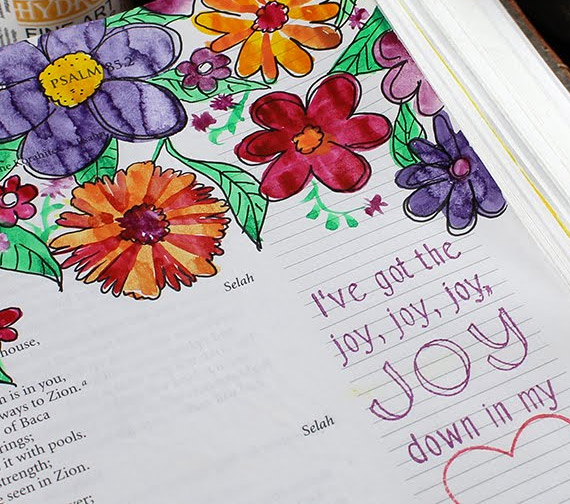 HYDRO
FINE ART
PSALM 85:2
Selah
house,
n is in you,
ways to Zion.ª
of Baca
rings;
it with pools.
strength;
e seen in Zion.
Selah
ver;
I've got the
joy, joy, joy,
JOY
down in my